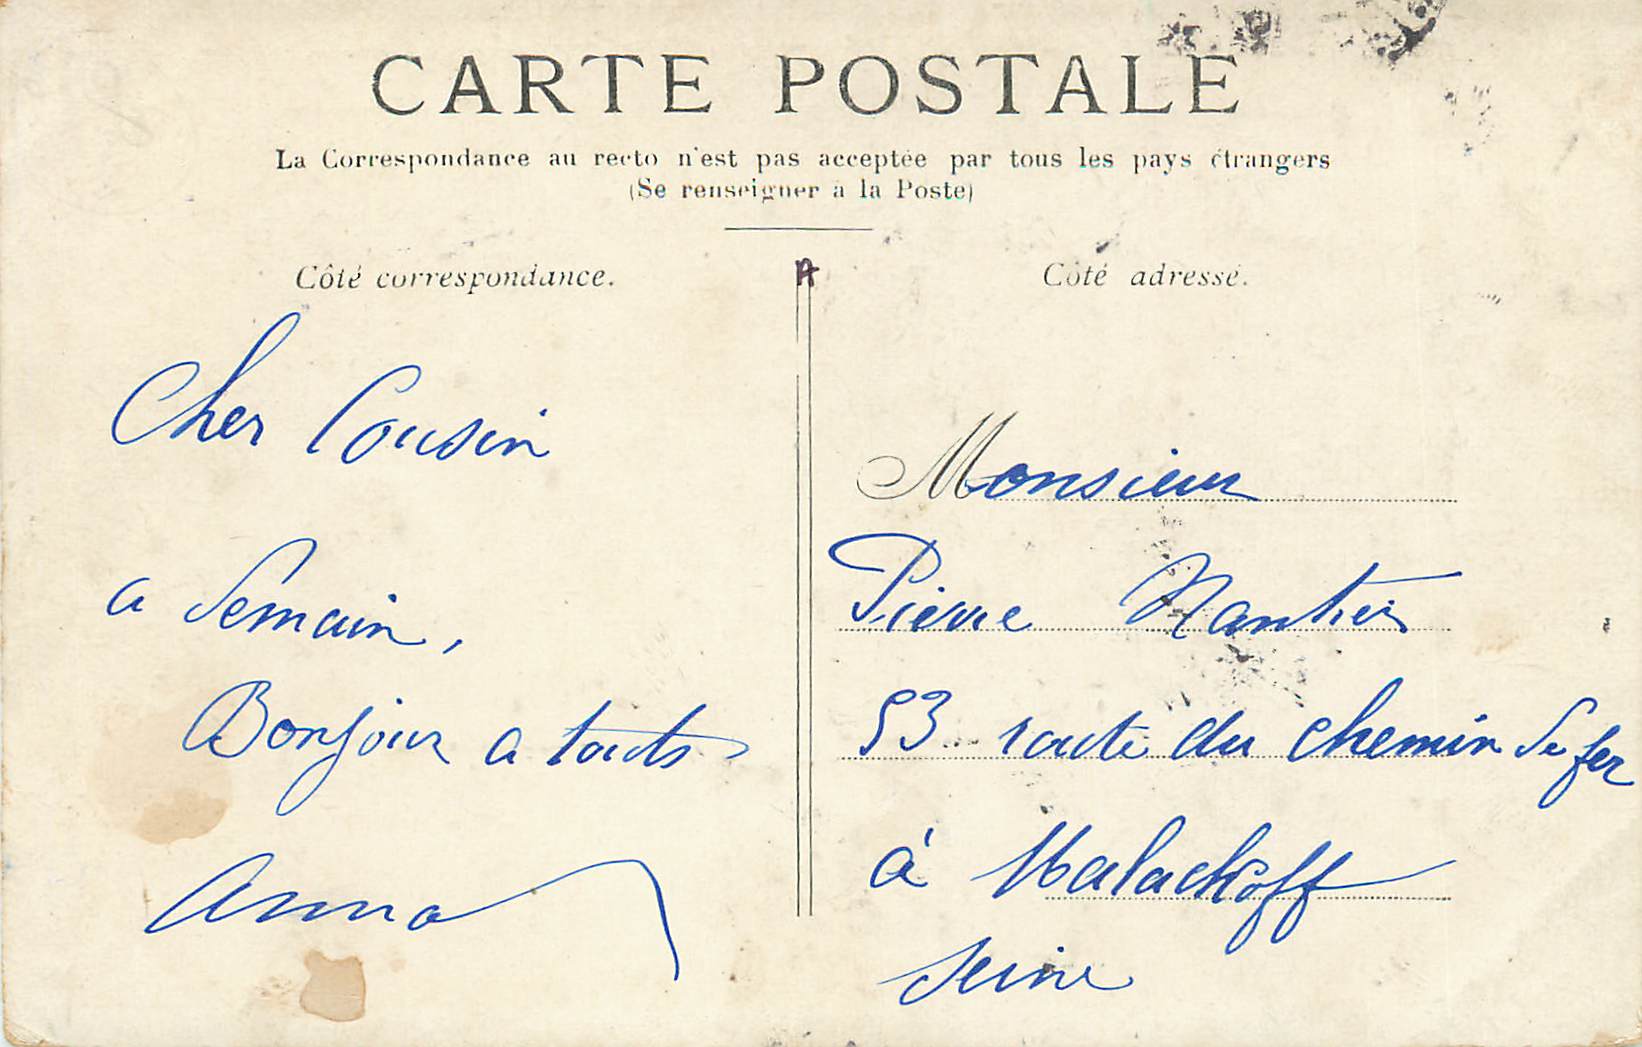 CARTE POSTALE
La Correspondance au recto n'est pas acceptée par tous les pays étrangers
(Se renseigner à la Poste)
Côté correspondance.
Côté adresse.
Cher Cousin
a demain,
Bonjour a touts
Anna
Monsieur
Pierre Nantier
53 route du chemin de fer
à Malackoff
Seine